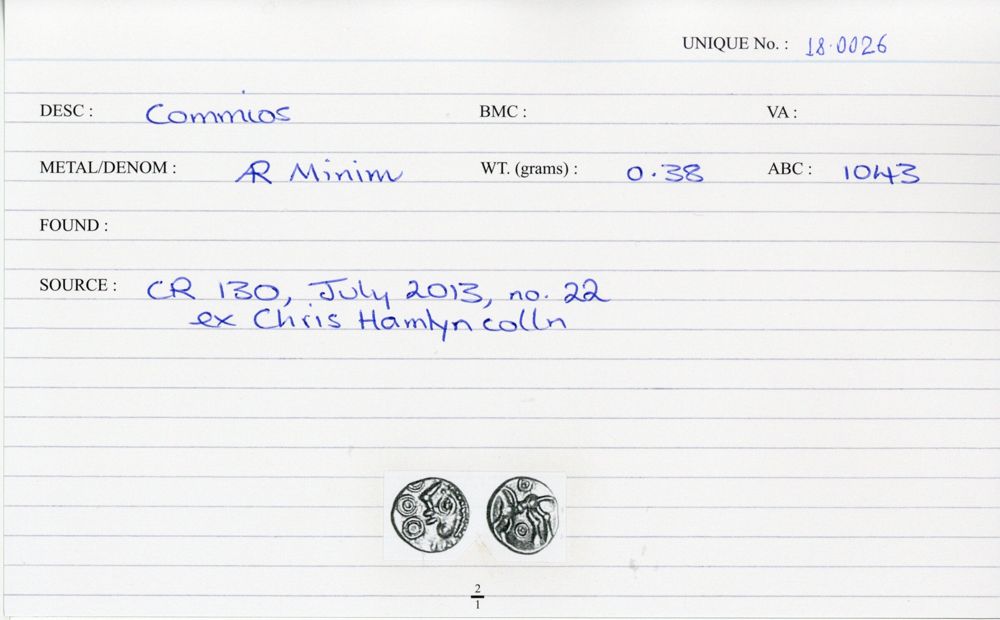 UNIQUE No. : 18.0026
DESC : Commios BMC : VA :
METAL/DENOM : AR Minim WT. (grams) : 0.38 ABC : 1043
FOUND :
SOURCE : CR 130, July 2013, no. 22
ex Chris Hamlyn colln
2
1